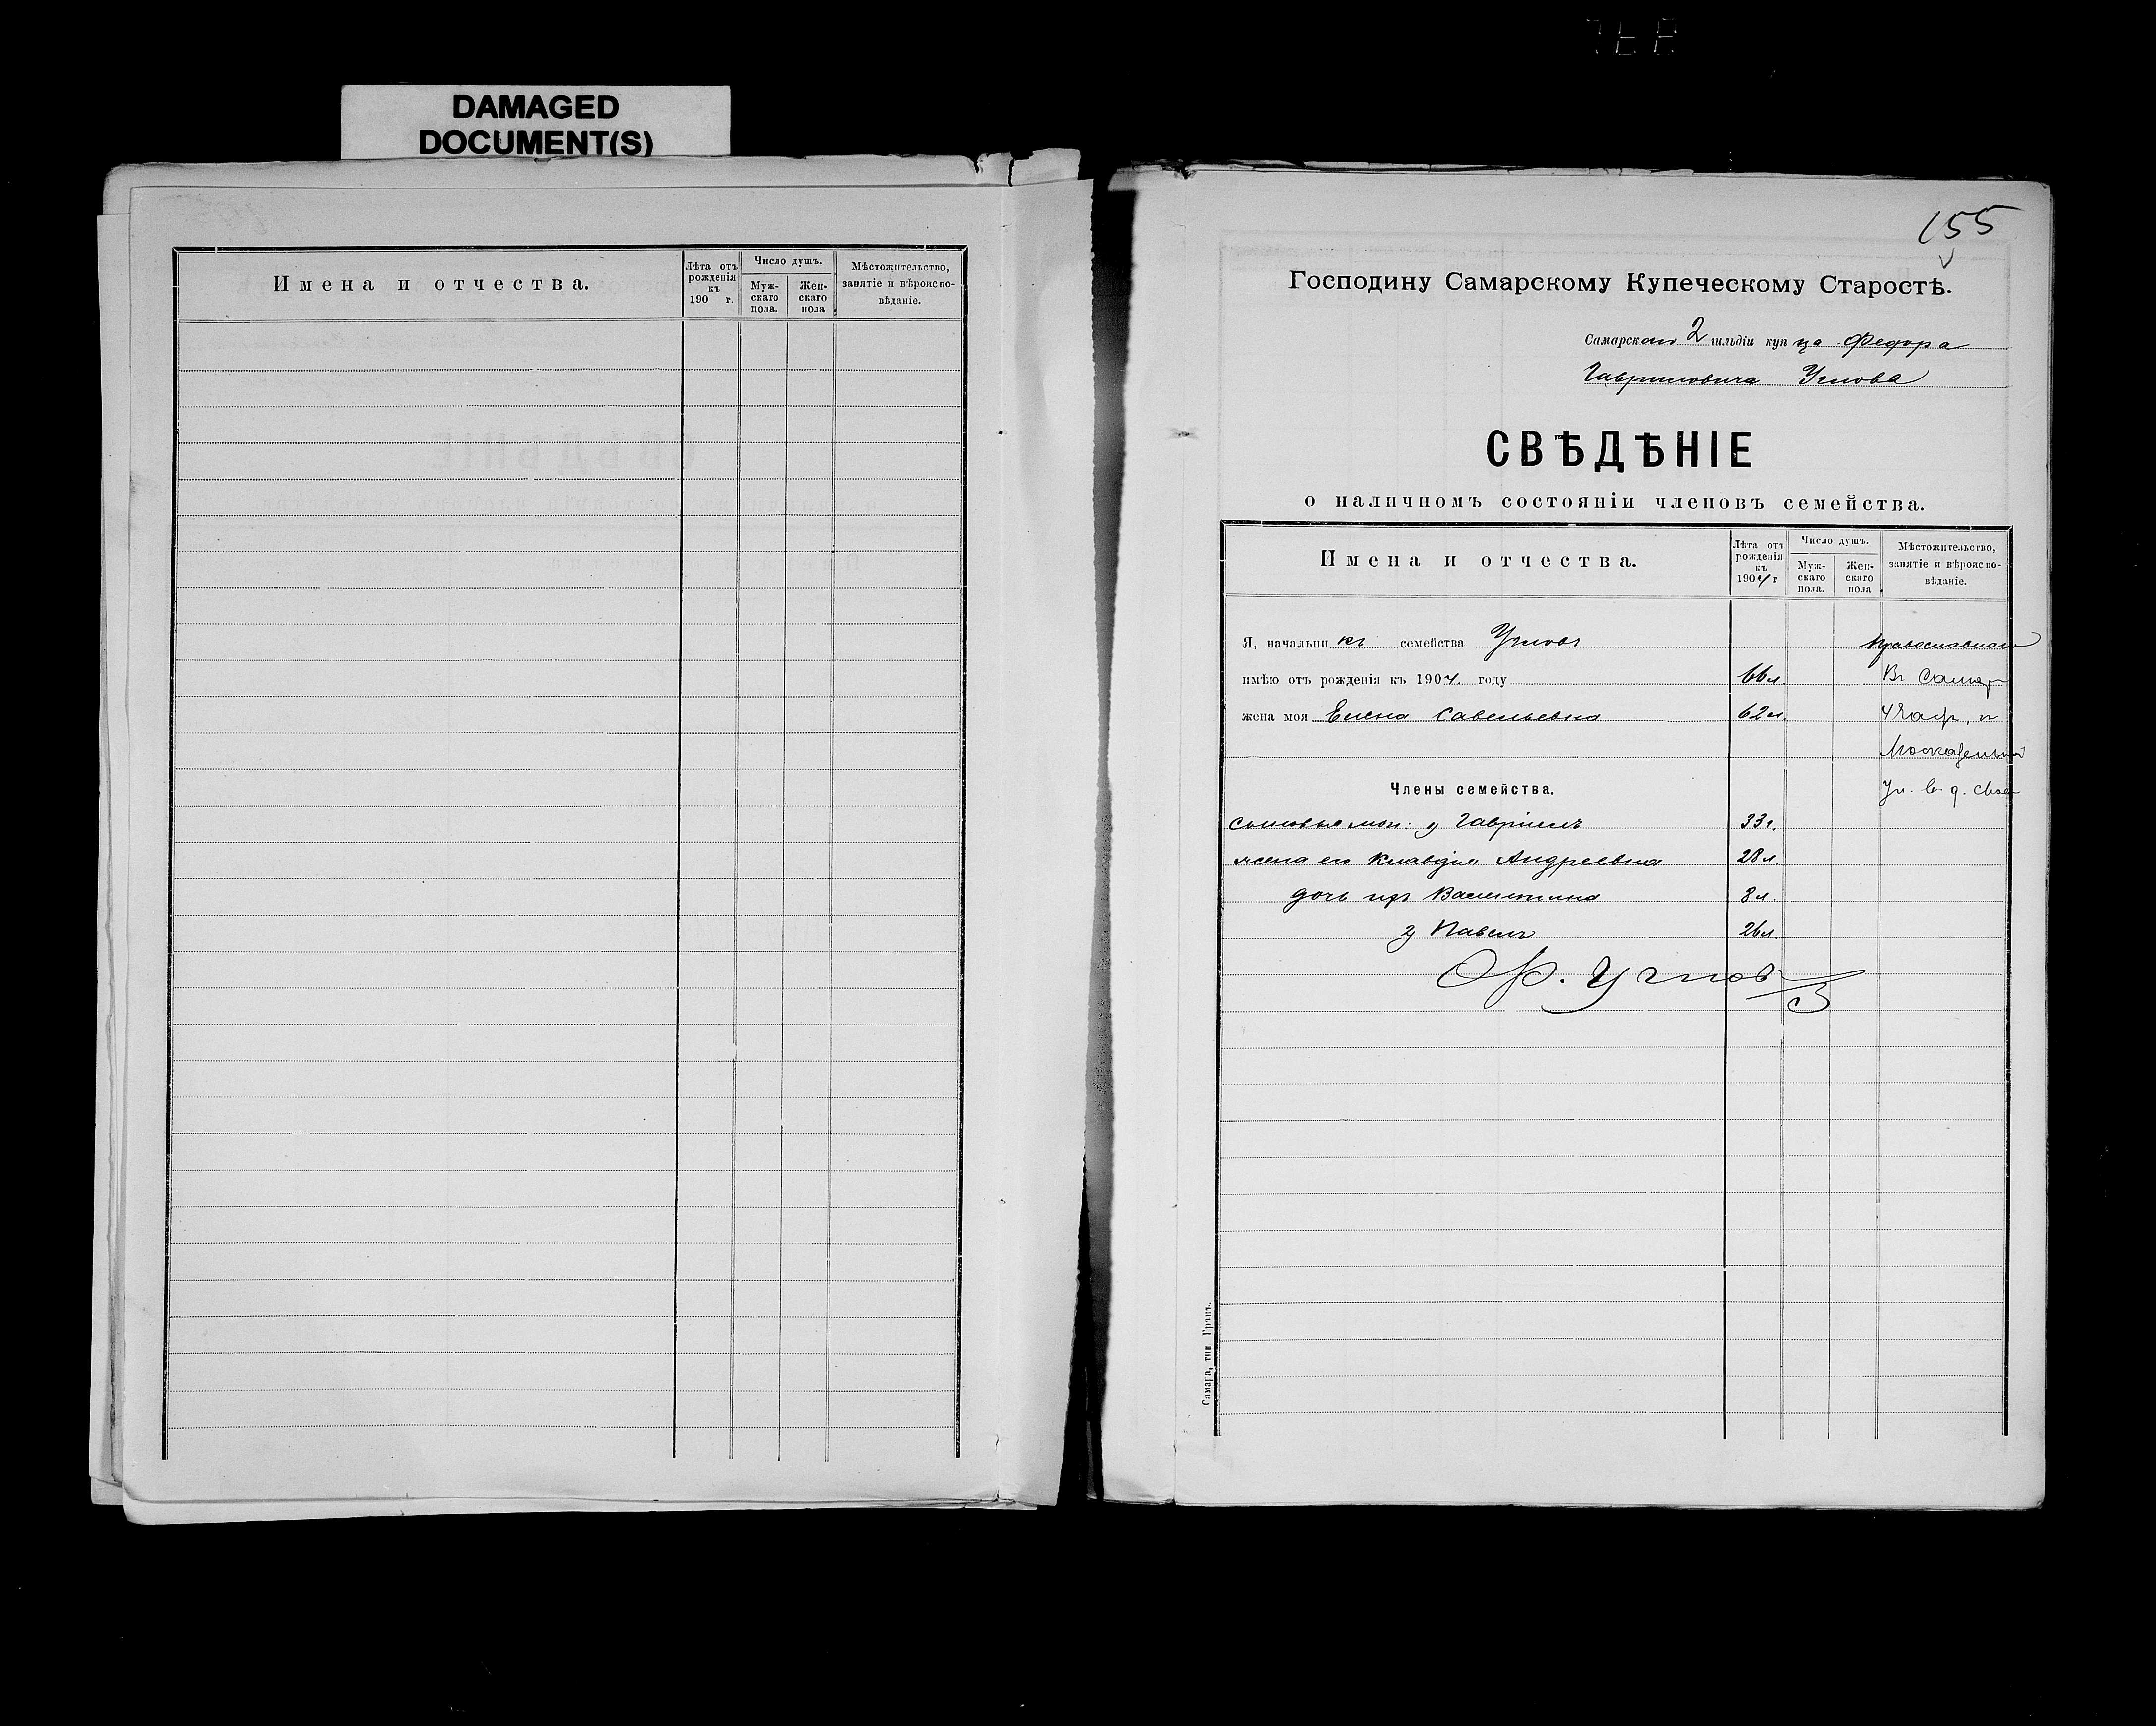 DAMAGED
DOCUMENT(S)
Имена и отчества.
Лѣта отъ рожденія къ 190 г.
Число душъ.
Муж-скаго пола.
Жен-скаго пола
Мѣстожительство, занятіе и вѣроисповѣданіе.
155
Господину Самарскому Купеческому Старостѣ.
Самарскаго 2 гильдіи купца Федора
Гавриловича Углова
СВѢДѢНІЕ
о наличномъ состояніи членовъ семейства.
Имена и отчества.
Лѣта отъ рожденія къ 1904 г
Число душъ.
Муж-скаго пола.
Жен-скаго пола
Мѣстожительство, занятіе и вѣроисповѣданіе.
Я, начальникъ семейства Угловъ Православнаго
имѣю отъ рожденія къ 1904. году 66 л. Въ Самар
жена моя Елена Савельевна 62 л. 4 части, п
Москательной
Члены семейства. Ул. в д. свое
сыновья мои: 1) Гавріилъ 33 г.
жена его Клавдія Андреевна 28 л.
дочь ихъ Валентина 8 л.
2) Павелъ 26 л.
Ф. Углов
Самара, тип. Гранъ.